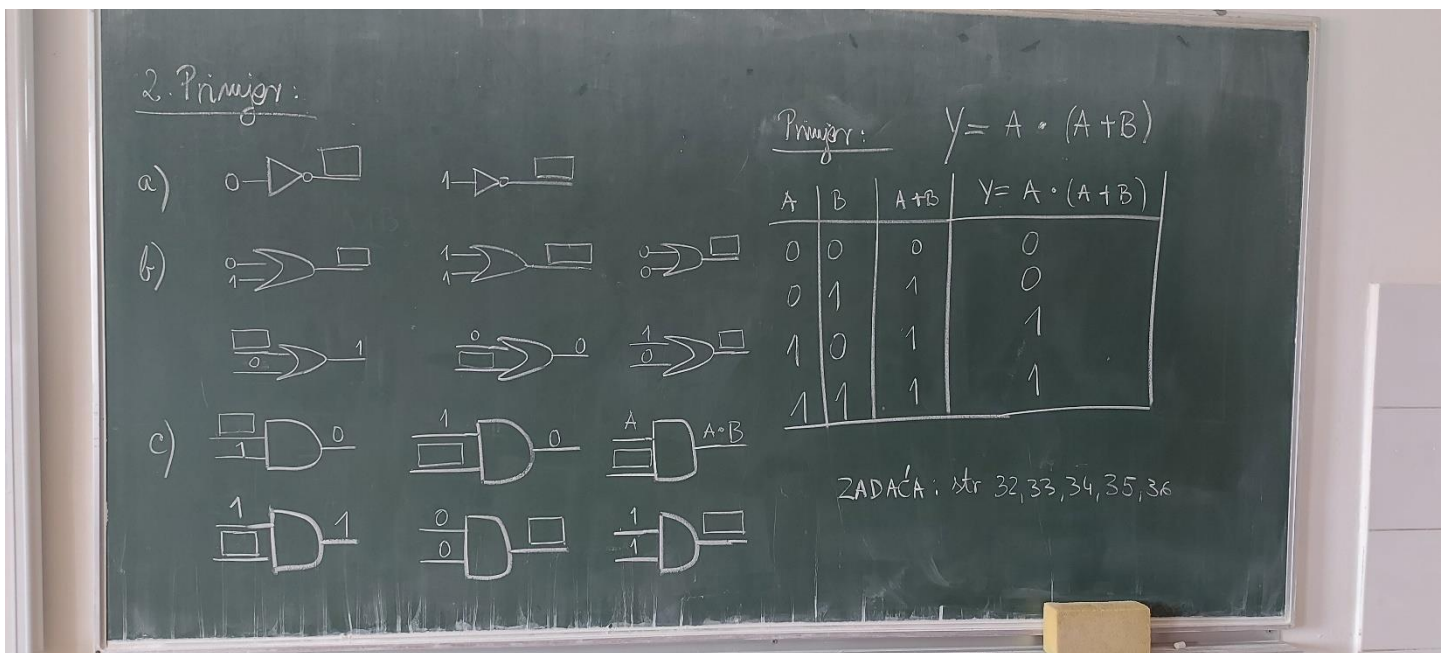 2. Primjer:
a) 0 1
b) 0 1 1 1 0 0
0 1 0 0 1 0
c) 1 0 1 0 A A·B
1 1 0 0 1 1
Primjer: Y = A · (A+B)
A B A+B Y = A · (A+B)
0 0 0 0
0 1 1 0
1 0 1 1
1 1 1 1
ZADAĆA: str 32,33,34,35,36